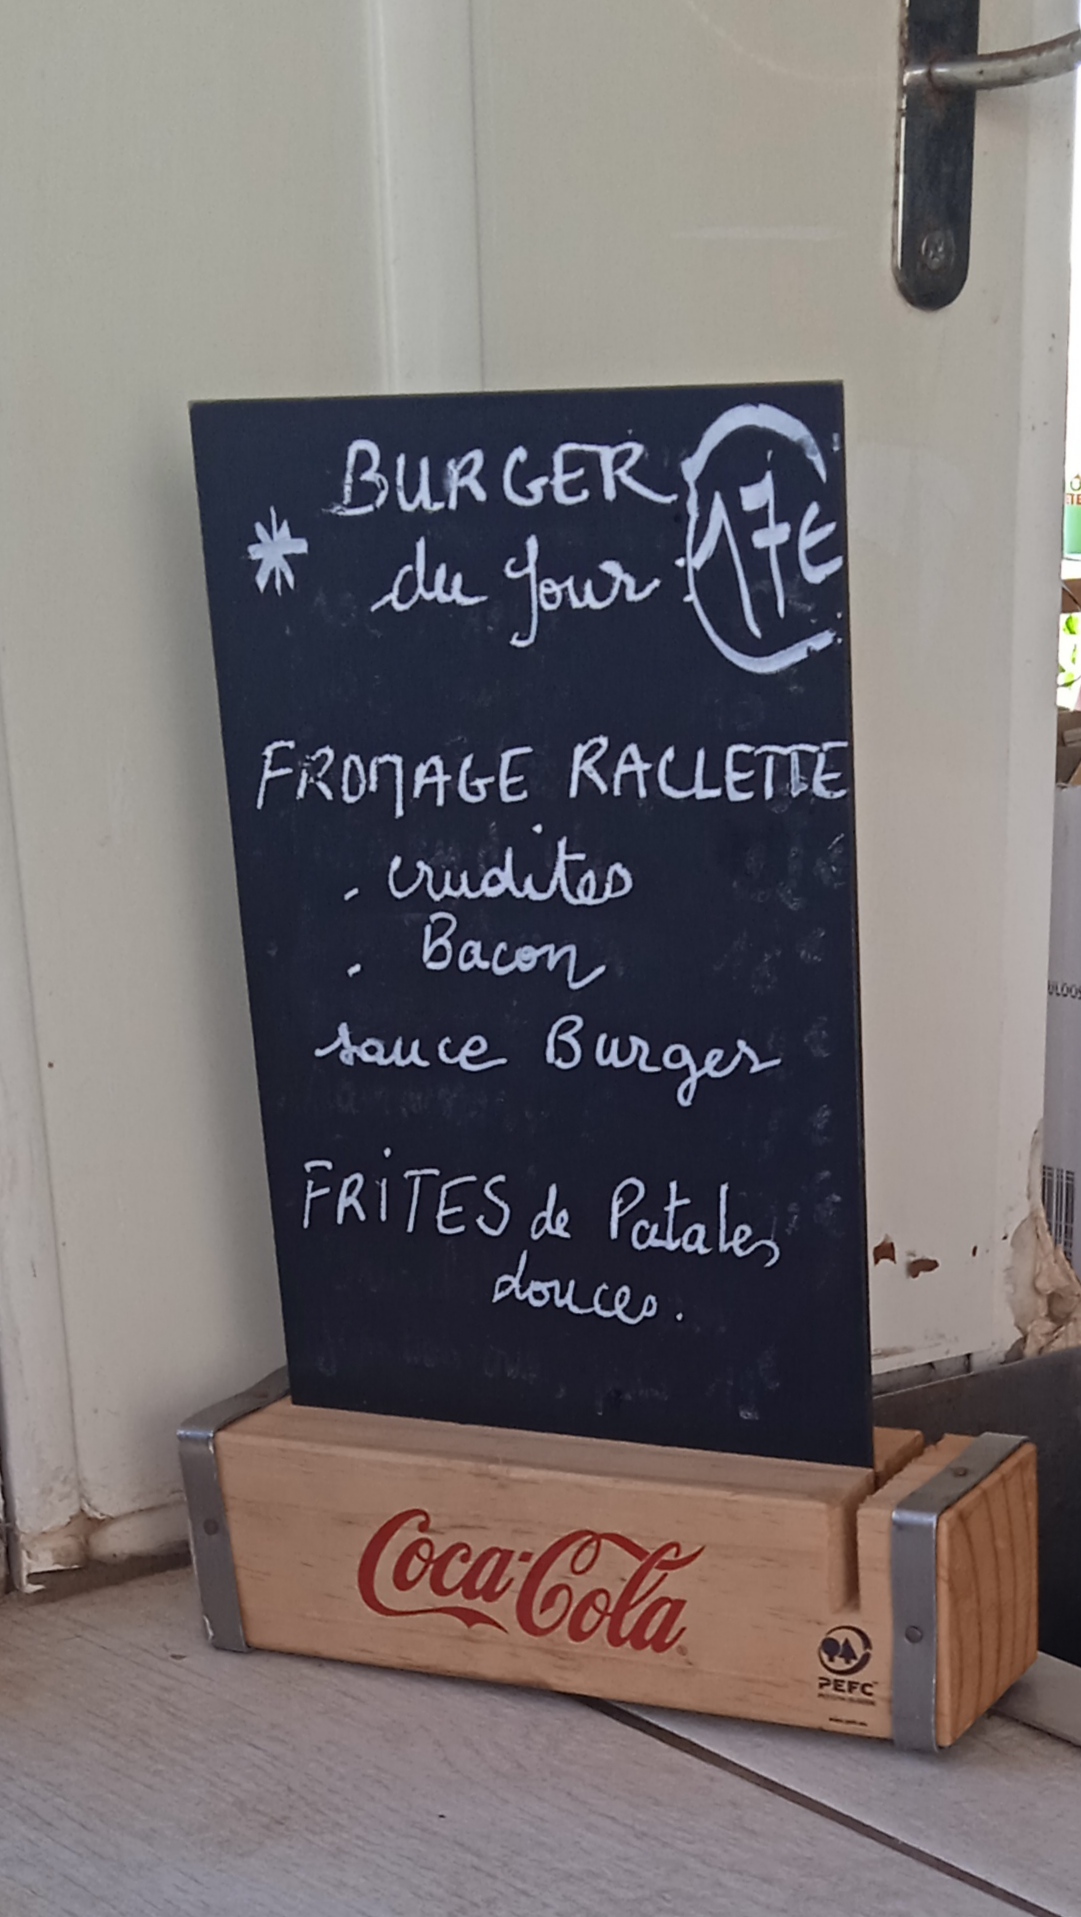 BURGER
* du Jour : 17€
FROMAGE RACLETTE
. crudites
. Bacon
sauce Burger
FRITES de Patates
douces.
Coca-Cola
PEFC